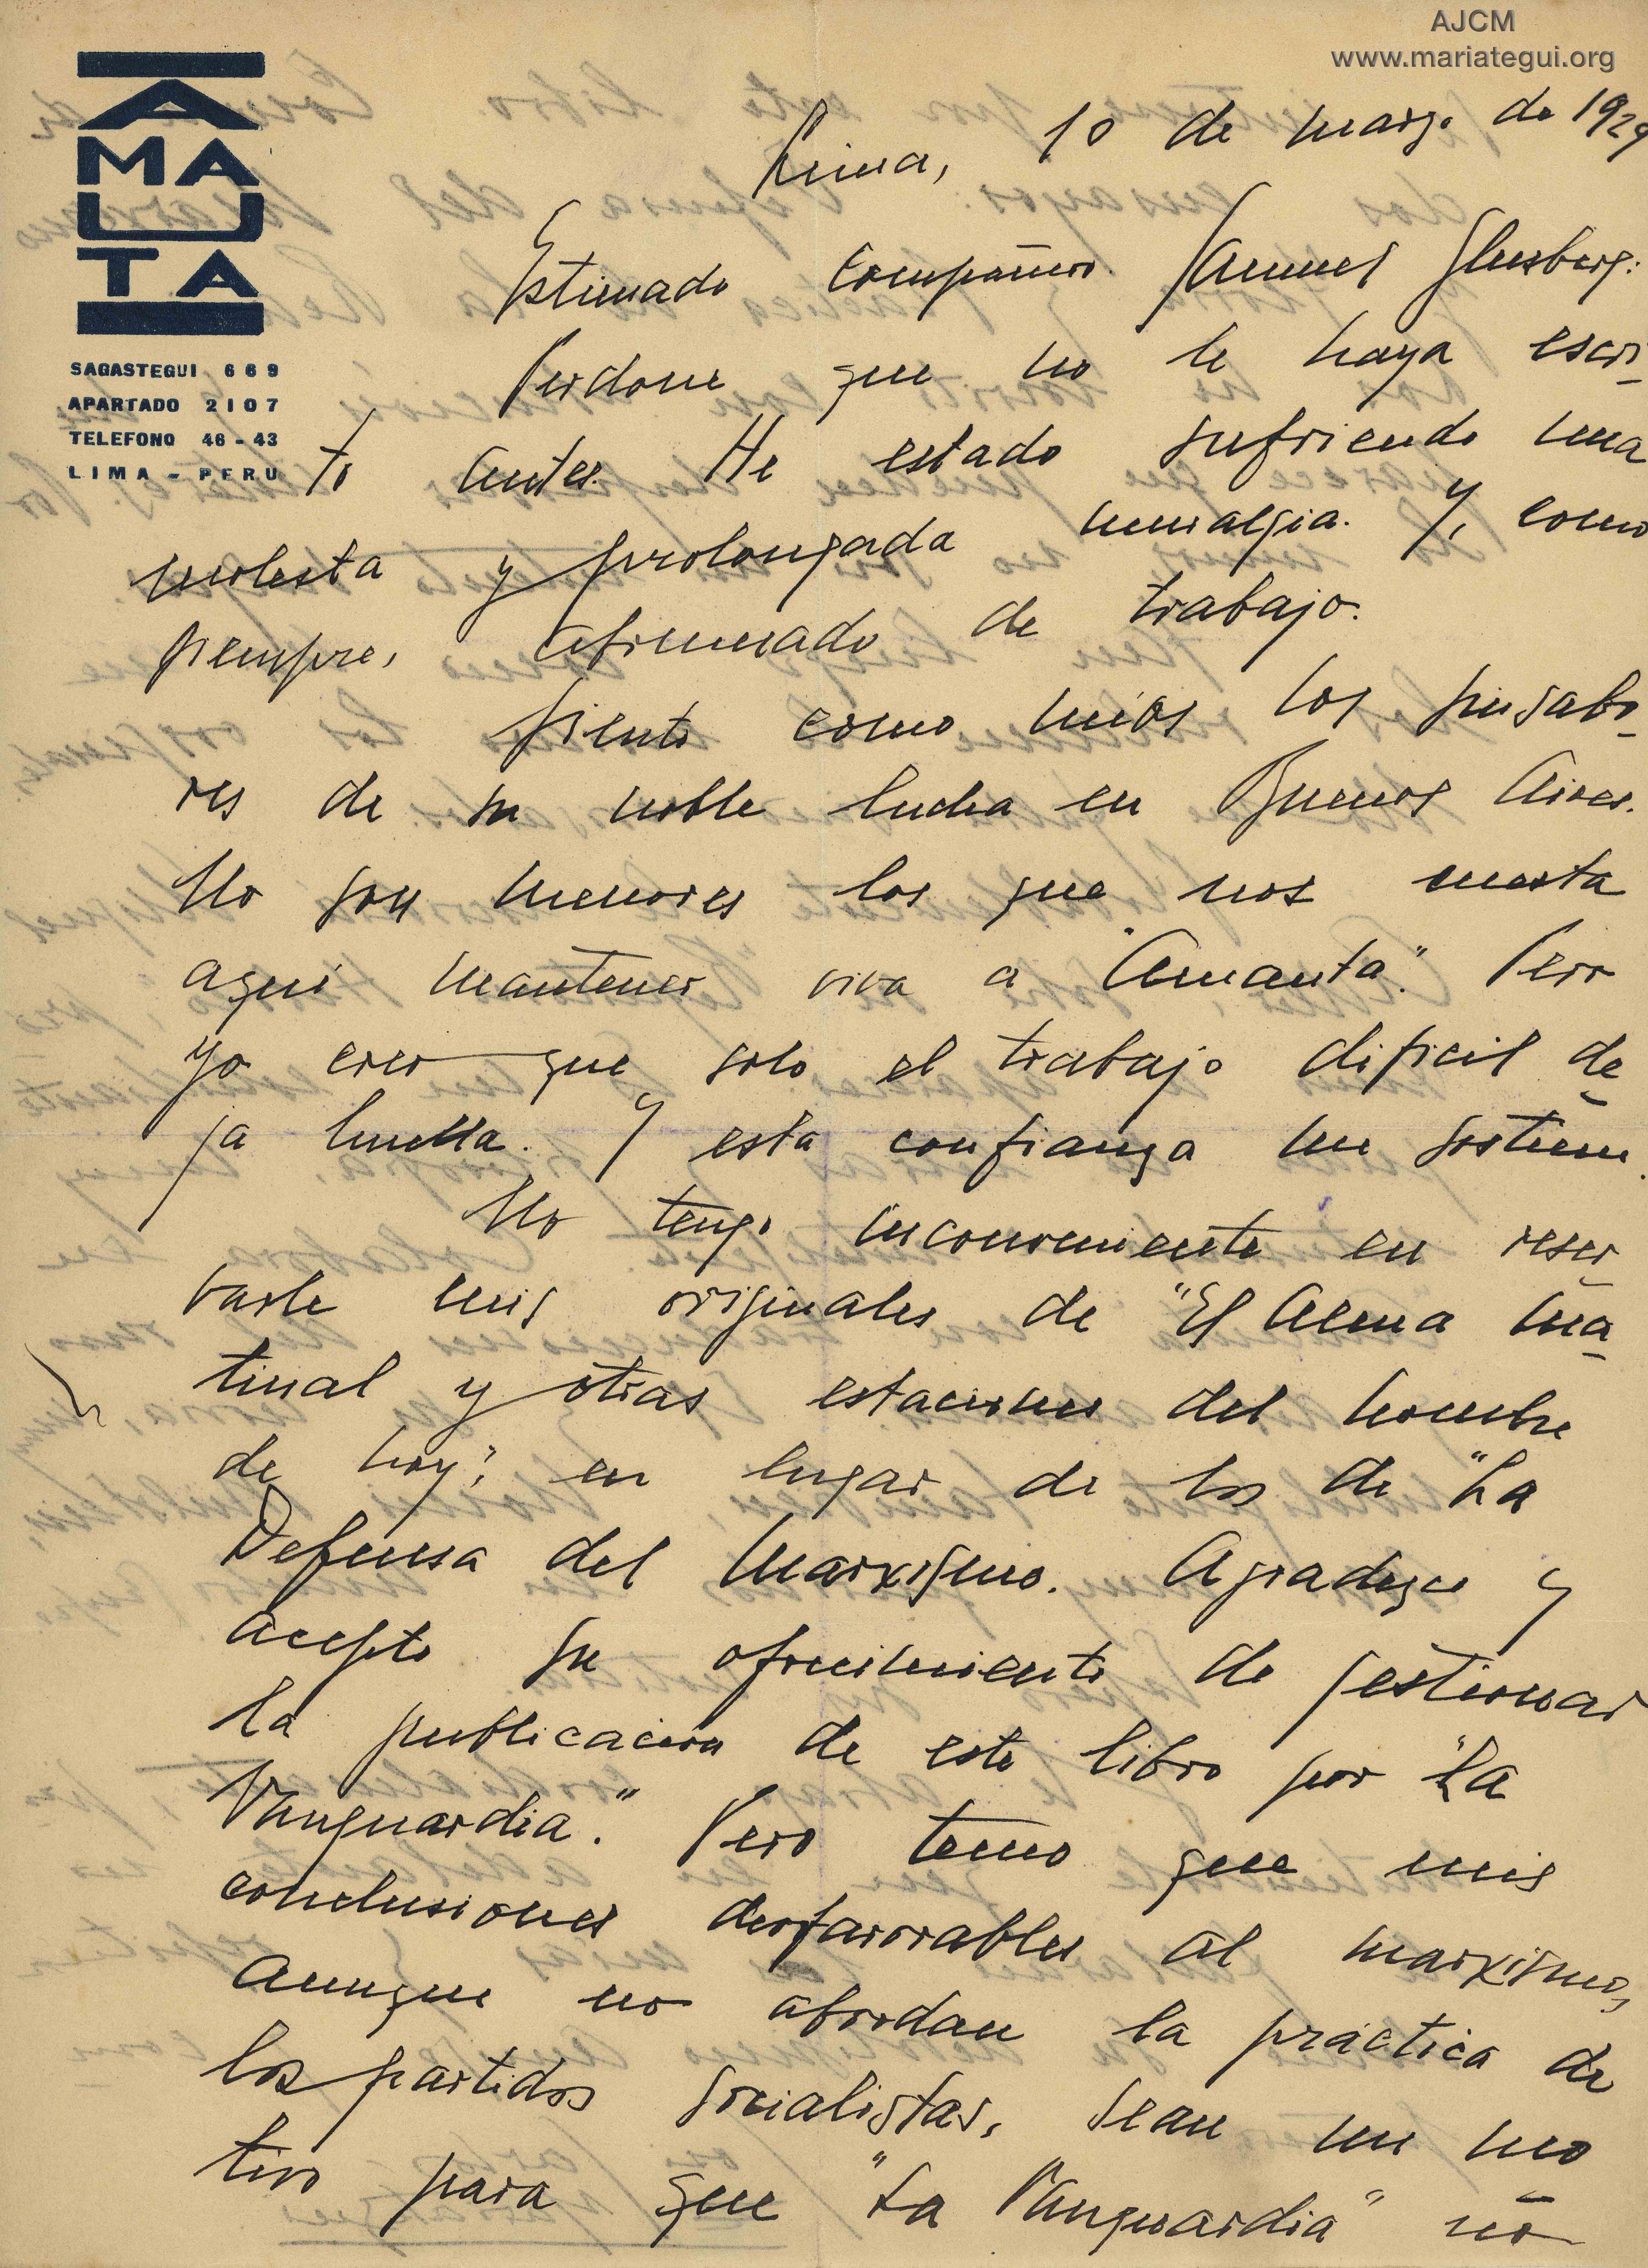 AJCM
www.mariategui.org
AMAUTA
SAGASTEGUI 669
APARTADO 2107
TELEFONO 46-43
LIMA - PERU
Lima, 10 de marzo de 1929
Estimado compañero Samuel Glusberg:
Perdone que no le haya escri-
to antes. He estado sufriendo una
molesta y prolongada neuralgia. Y, como
siempre, abrumado de trabajo.
Siento como mios los sinsabo-
res de su noble lucha en Buenos Aires.
No son menores los que nos cuesta
aqui mantener viva a "Amauta". Pero
yo creo que solo el trabajo dificil de-
ja huella. Y esta confianza me sostiene.
No tengo inconveniente en reser-
varle mis originales de "El Alma ma-
tinal y otras estaciones del hombre
de hoy", en lugar de los de "La
Defensa del Marxismo. Agradezco y
acepto su ofrecimiento de gestionar
la publicación de este libro por "La
Vanguardia." Pero temo que mis
conclusiones desfavorables al marxismo,
aunque no abordan la práctica de
los partidos socialistas, sean un mo-
tivo para que "La Vanguardia" no